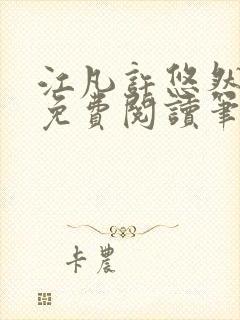 江凡許悠然
免費閱讀筆
卡農